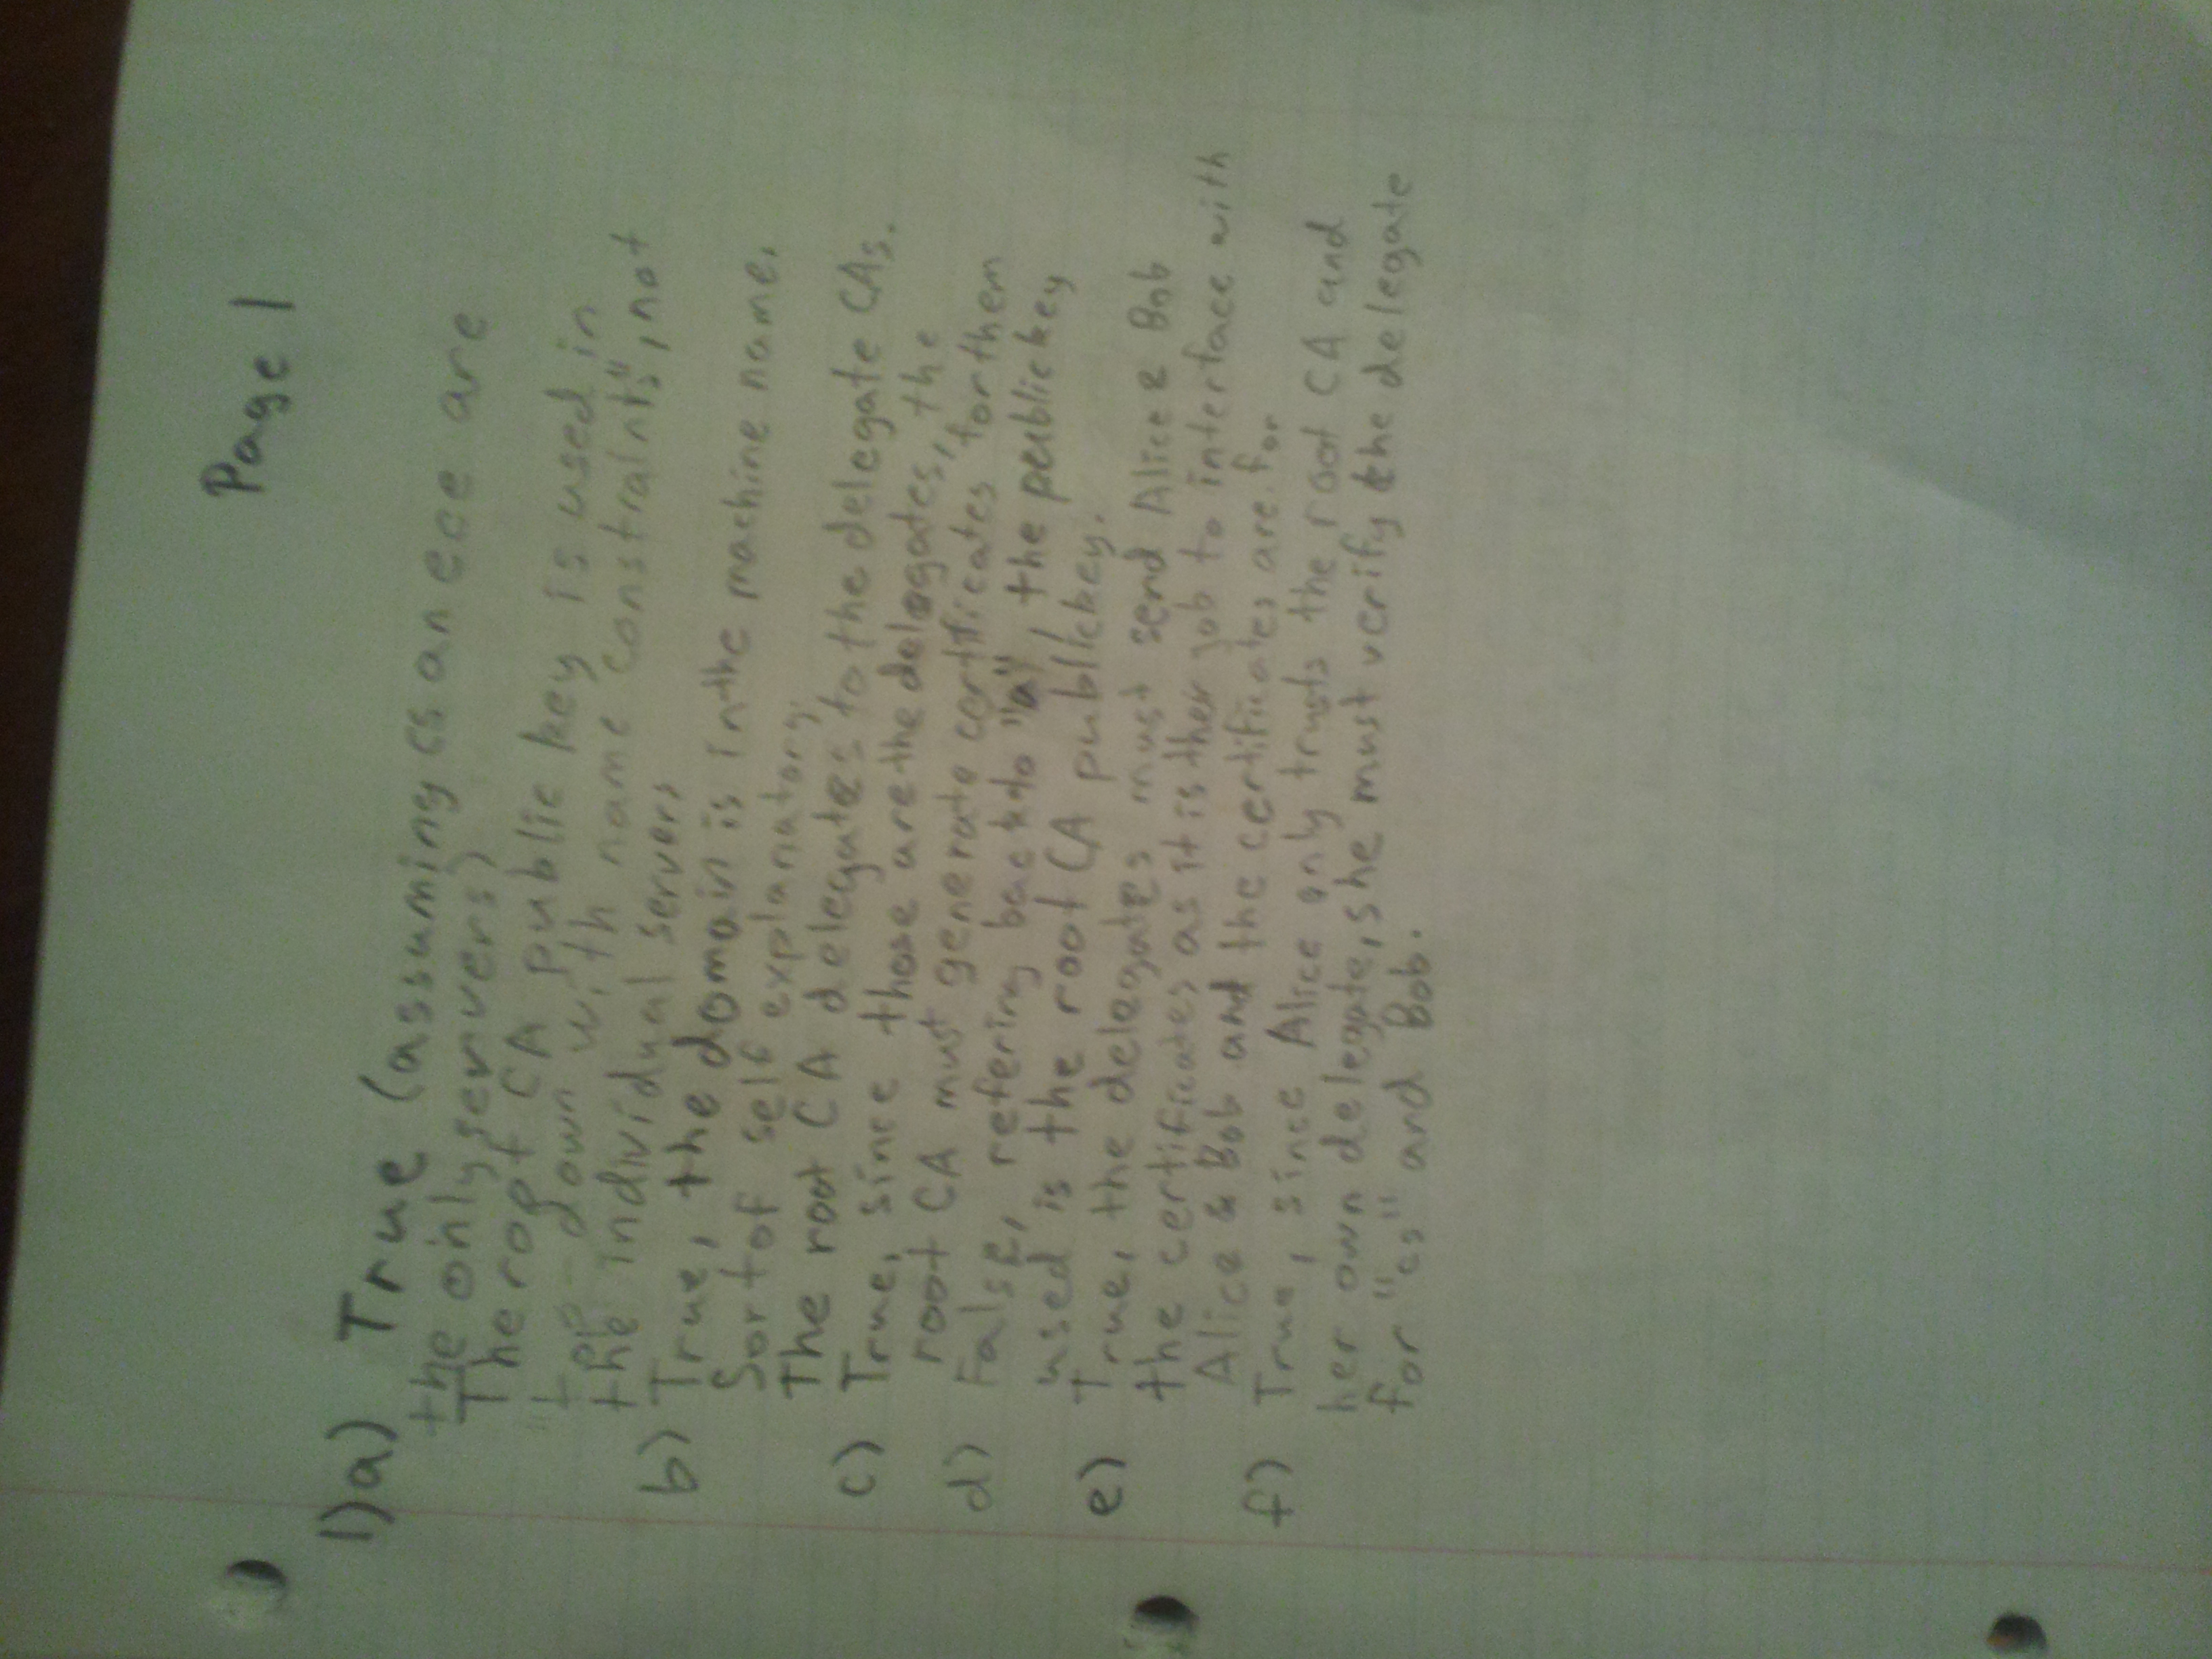 Page 1
1)a) True (assuming cs an ece are
the only servers)
The root CA public key is used in
"top-down with name constraints", not
the individual servers
b) True, the domain is in the machine name.
Sort of self explanatory.
The root CA delegates to the delegate CAs.
c) True, since those are the delegates, the
root CA must generate certificates for them
d) False, refering back to "a", the public key
used is the root CA public key.
e) True, the delegates must send Alice & Bob
the certificates as it is their job to interface with
Alice & Bob and the certificates are for
f) True, since Alice only trusts the root CA and
her own delegate, she must verify the delegate
for "cs" and Bob.